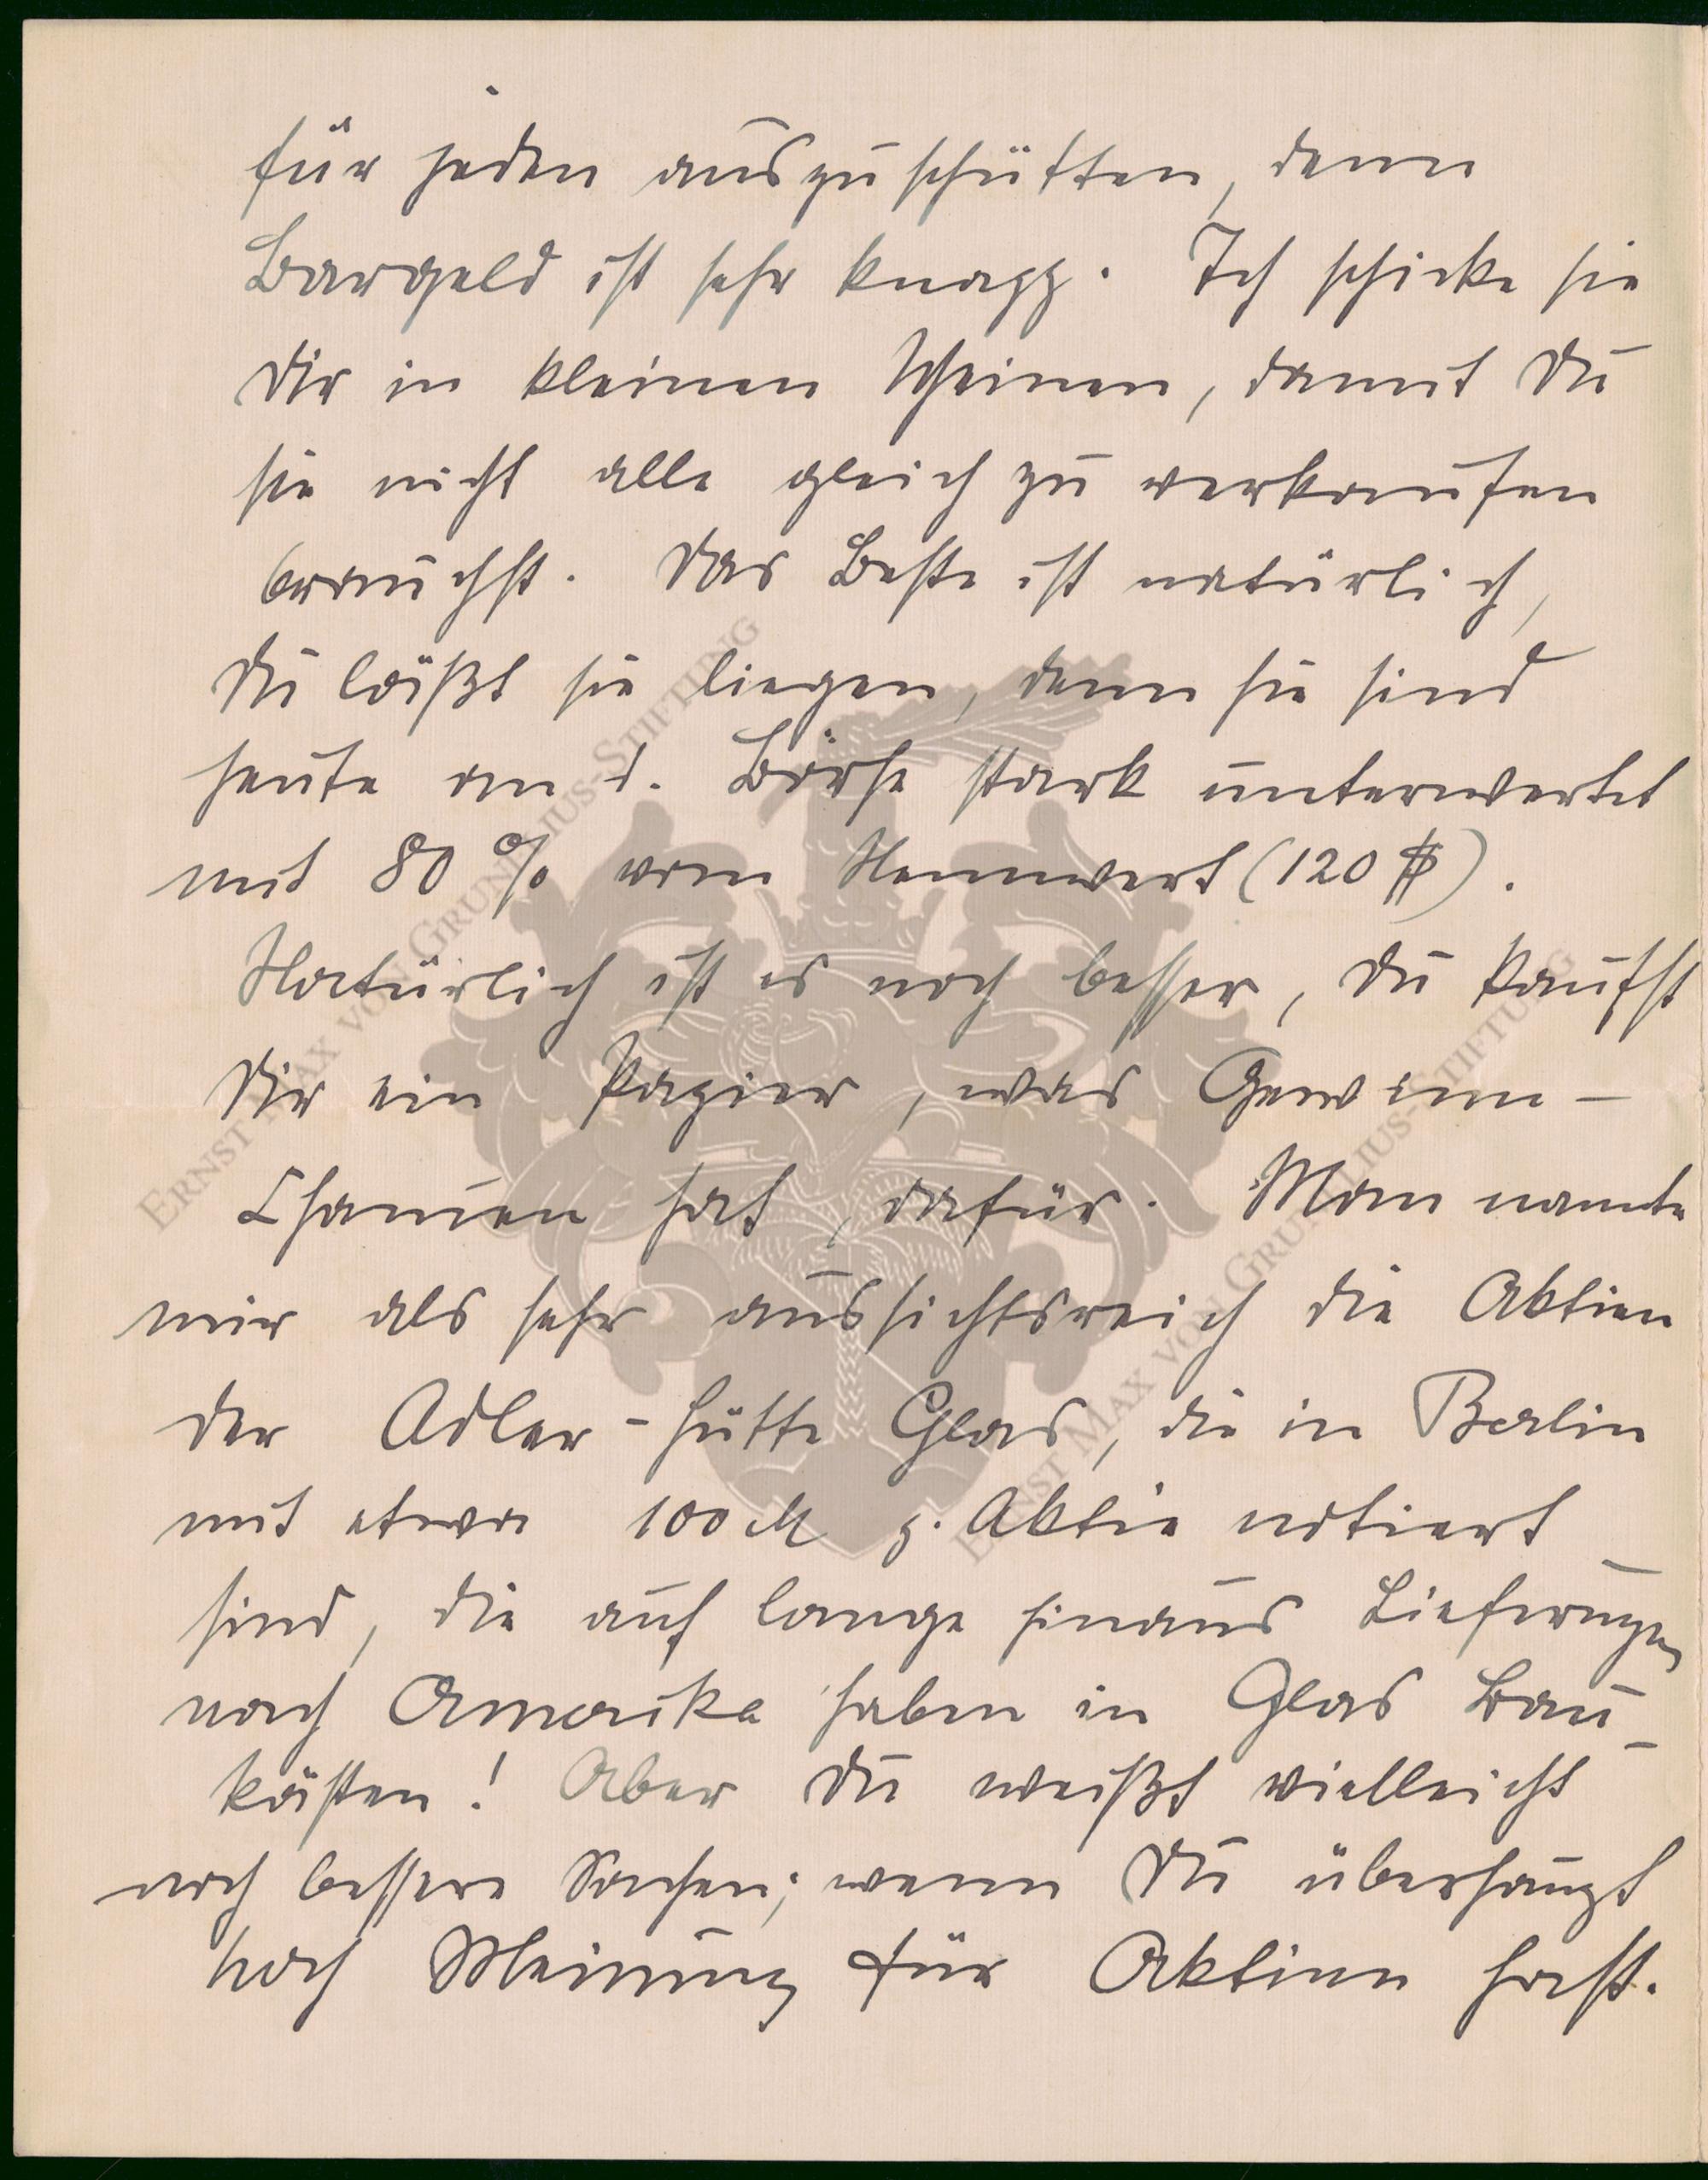 für jeden auszuschütten, denn
Bargeld ist sehr knapp. Ich schicke sie
Dir in kleinen Scheinen, damit Du
sie nicht alle gleich zu verkaufen
brauchst. Das Beste ist natürlich,
Du läßt sie liegen, denn sie sind
heute an d. Börse stark unterwertet
mit 80 % vom Nennwert (120 $).
Natürlich ist es noch besser, Du kaufst
Dir ein Papier, was Gewinn-
Chancen hat, dafür. Man nannte
mir als sehr aussichtsreich die Aktien
der Adler-Hütte Glas, die in Berlin
mit etwa 100 M p. Aktie notiert
sind, die auf lange hinaus Lieferungen
nach Amerika haben in Glas Bau-
kästen! Aber Du weißt vielleicht
noch bessere Sachen; wenn Du überhaupt
noch Meinung für Aktien hast.
ERNST MAX VON GRUNELIUS-STIFTUNG
ERNST MAX VON GRUNELIUS-STIFTUNG